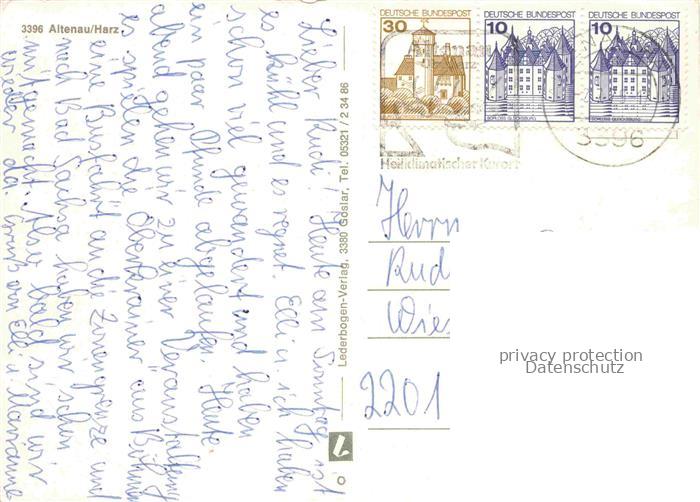 3396 Altenau/Harz
Lieber Rudi! Heute am Sonntag ist
es kühl und es regnet. Elli u. ich haben
schon viel gewandert und haben
ein paar Pfunde abgelaufen. Heute
abend gehen wir zu einer Veranstaltung
es spielen die Oberkrainer aus Böhmen
eine Busfahrt an die Zonengrenze und
nach Bad Sachsa haben wir schon
mitgemacht. Nun bald sind wir
wieder da. Gruß von Elli u. Marianne
Lederbogen-Verlag, 3380 Goslar, Tel. 05321 / 2 34 86
DEUTSCHE BUNDESPOST
30
DEUTSCHE BUNDESPOST
10
SCHLOSS GLÜCKSBURG
DEUTSCHE BUNDESPOST
10
SCHLOSS GLÜCKSBURG
3396
Heilklimatischer Kurort
Herrn
Rud
Wie
2201
privacy protection
Datenschutz